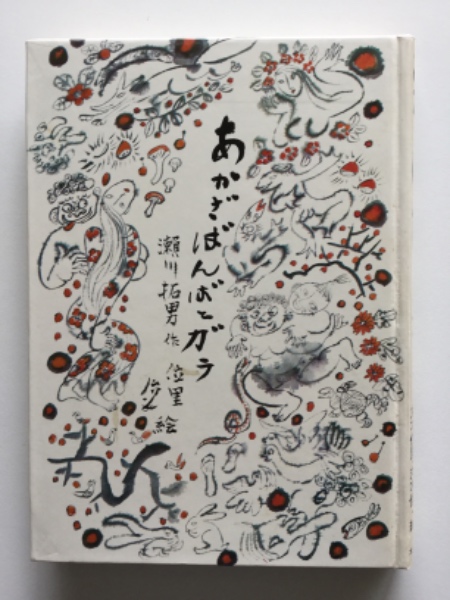 あかざばんばとガラ
瀬川拓男 作
位里
俊 絵